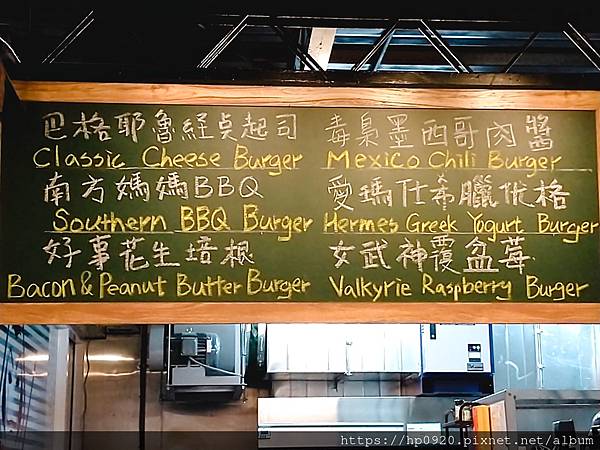 巴格耶魯經典起司
Classic Cheese Burger
南方媽媽BBQ
Southern BBQ Burger
好事花生培根
Bacon & Peanut Butter Burger
毒梟墨西哥肉醬
Mexico Chili Burger
愛瑪仕希臘优格
Hermes Greek Yogurt Burger
女武神覆盆莓
Valkyrie Raspberry Burger
https://hp0920.pixnet.net/album